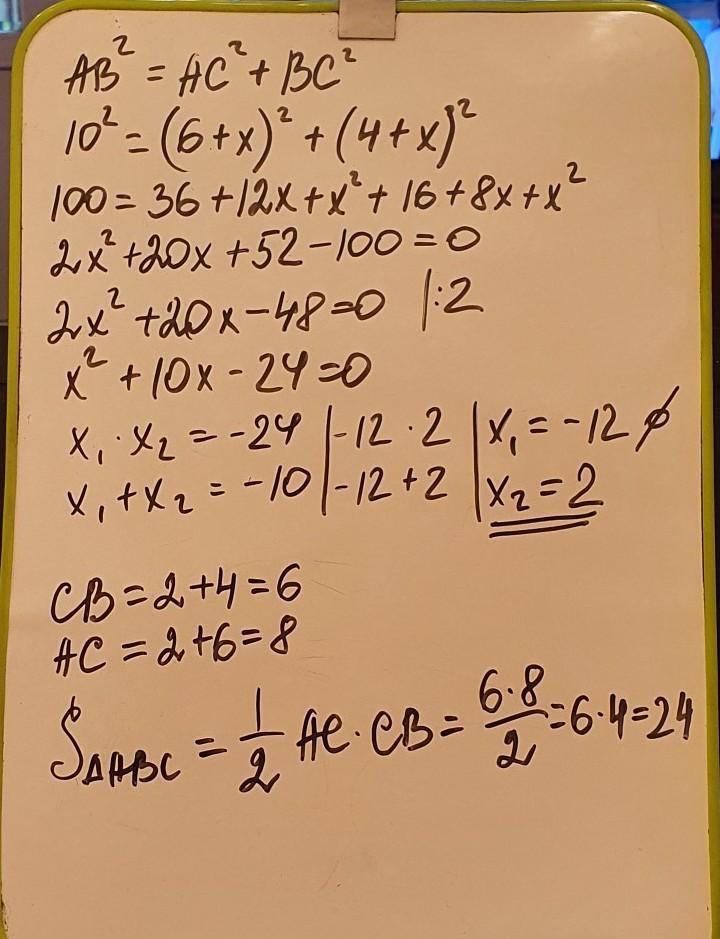 AB² = AC² + BC²
10² = (6+x)² + (4+x)²
100 = 36 +12x+x² + 16 +8x+x²
2x² +20x +52 -100 =0
2x² +20x -48 =0 |:2
x² +10x - 24 =0
x₁ · x₂ = -24 | -12 · 2 | x₁ = -12 ∅
x₁ + x₂ = -10 | -12 + 2 | x₂ = 2
CB = 2+4 = 6
AC = 2+6 = 8
S△ABC = 1/2 AC · CB = 6·8/2 = 6·4 = 24